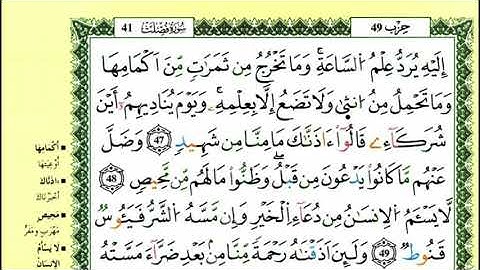 حزب 49
سورة فصلت 41
إِلَيْهِ يُرَدُّ عِلْمُ السَّاعَةِ ۚ وَمَا تَخْرُجُ مِن ثَمَرَاتٍ مِّنْ أَكْمَامِهَا
وَمَا تَحْمِلُ مِنْ أُنثَىٰ وَلَا تَضَعُ إِلَّا بِعِلْمِهِ ۚ وَيَوْمَ يُنَادِيهِمْ أَيْنَ
شُرَكَاءِے قَالُوا ءَاذَنَّاكَ مَا مِنَّا مِن شَهِيدٍ 47 وَضَلَّ
عَنْهُم مَّا كَانُوا يَدْعُونَ مِن قَبْلُ ۖ وَظَنُّوا مَا لَهُم مِّن مَّحِيصٍ 48
لَّا يَسْـَٔمُ الْإِنسَانُ مِن دُعَاءِ الْخَيْرِ وَإِن مَّسَّهُ الشَّرُّ فَيَـُٔوسٌ
قَنُوطٌ 49 وَلَئِنْ أَذَقْنَاهُ رَحْمَةً مِّنَّا مِن بَعْدِ ضَرَّاءَ مَسَّتْهُ
أكمامها
أوعيتها
ءاذناك
أخبرناك
محيص
مهرب ومفر
لا يسأم
الإنسان